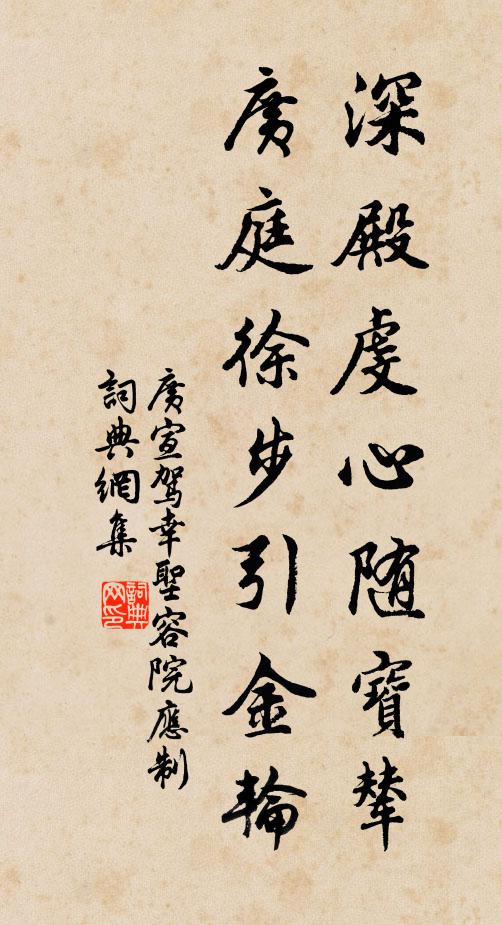 深殿虔心随寶輦
廣庭徐步引金輪
廣宣駕幸聖容院應制
詞典網集
詞典网印